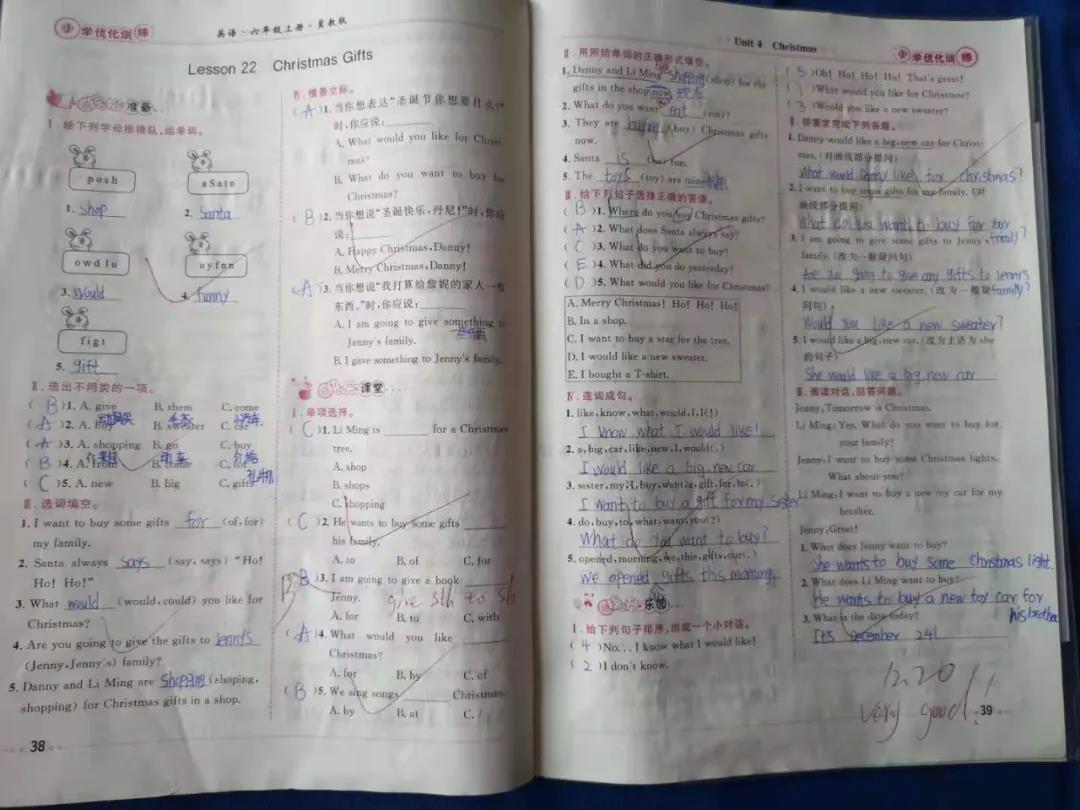 小学优化训练
英语·六年级上册·冀教版
Lesson 22 Christmas Gifts
准备
Ⅰ.给下列字母排排队,组单词。
posh
aSatn
1. shop
2. Santa
owdlu
uyfnn
3. would
4. funny
figt
5. gift
Ⅱ.选出不同类的一项。
( B )1. A. give B. them C. come
( A )2. A. buy B. sweater C. car
( A )3. A. shopping B. go C. buy
( B )4. A. from B. come C. for
( C )5. A. new B. big C. gift
Ⅲ.选词填空。
1. I want to buy some gifts for (of, for)
my family.
2. Santa always says (say, says) “Ho!
Ho! Ho!”
3. What would (would, could) you like for
Christmas?
4. Are you going to give the gifts to Jenny's
(Jenny, Jenny's) family?
5. Danny and Li Ming are shopping (shoping,
shopping) for Christmas gifts in a shop.
38
Ⅳ.情景交际。
( A )1. 当你想表达“圣诞节你想要什么?”
时,你应说:
A. What would you like for Christ-
mas?
B. What do you want to buy for
Christmas?
( B )2. 当你想说“圣诞快乐,丹尼!”时,你应
说:
A. Happy Christmas, Danny!
B. Merry Christmas, Danny!
( A )3. 当你想说“我打算给詹妮的家人一些
东西。”时,你应说:
A. I am going to give something to
Jenny's family.
B. I gave something to Jenny's family.
课堂
Ⅰ.单项选择。
( C )1. Li Ming is ______ for a Christmas
tree.
A. shop
B. shops
C. shopping
( C )2. He wants to buy some gifts ______
his family.
A. to B. of C. for
( B )3. I am going to give a book ______
Jenny. give sth to sb
A. for B. to C. with
( A )4. What would you like ______
Christmas?
A. for B. by C. of
( B )5. We sing songs ______ Christmas.
A. by B. at C. /
Unit 4 Christmas
小学优化训练
Ⅱ.用所给单词的正确形式填空。
1. Danny and Li Ming shopping (shop) for the
gifts in the shop now.
2. What do you want eat (eat)?
3. They are buying (buy) Christmas gifts
now.
4. Santa is (be) fun.
5. The toys (toy) are mine.
Ⅲ.给下列句子选择正确的答语。
( B )1. Where do you buy Christmas gifts?
( A )2. What does Santa always say?
( C )3. What do you want to buy?
( E )4. What did you do yesterday?
( D )5. What would you like for Christmas?
A. Merry Christmas! Ho! Ho! Ho!
B. In a shop.
C. I want to buy a star for the tree.
D. I would like a new sweater.
E. I bought a T-shirt.
Ⅳ.连词成句。
1. like, know, what, would, I, I(!)
I know what I would like!
2. a, big, car, like, new, I, would(.)
I would like a big, new car
3. sister, my, I, buy, want, a, gift, for, to(.)
I want to buy a gift for my sister
4. do, buy, to, what, want, you(?)
What do you want to buy?
5. opened, morning, we, this, gifts, our(.)
We opened gifts this morning,
乐园
Ⅰ.给下列句子排序,组成一个小对话。
( 4 )No... I know what I would like!
( 2 )I don't know.
( 5 )Oh! Ho! Ho! Ho! That's great!
( )What would you like for Christmas?
( 3 )Would you like a new sweater?
Ⅱ.按要求完成下列各题。
1. Danny would like a big, new car for Christ-
mas. (对画线部分提问)
What would Danny like for christmas?
2. I want to buy some gifts for my family. (对
画线部分提问)
What do you want to buy for your
family?
3. I am going to give some gifts to Jenny's
family. (改为一般疑问句)
Are you going to give any gifts to Jenny's
family?
4. I would like a new sweater. (改为一般疑
问句)
Would you like a new sweater?
5. I would like a big, new car. (改为主语为 she
的句子)
She would like a big, new car
Ⅲ.阅读对话,回答问题。
Jenny: Tomorrow is Christmas.
Li Ming: Yes. What do you want to buy for
your family?
Jenny: I want to buy some Christmas lights.
What about you?
Li Ming: I want to buy a new toy car for my
brother.
Jenny: Great!
1. What does Jenny want to buy?
She wants to buy some christmas light.
2. What does Li Ming want to buy?
He wants to buy a new toy car for
his brother
3. What is the date today?
It's December 24!
12.20
very good!
39